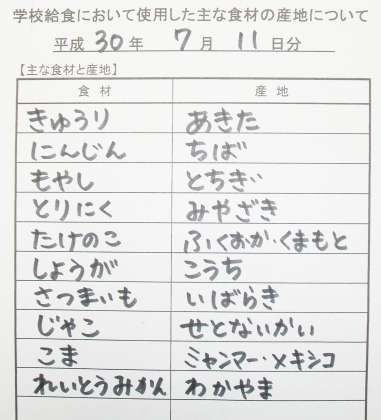 学校給食において使用した主な食材の産地について
平成 30 年 7 月 11 日分
【主な食材と産地】
食材 産地
きゅうり あきた
にんじん ちば
もやし とちぎ
とりにく みやざき
たけのこ ふくおか・くまもと
しょうが こうち
さつまいも いばらき
じゃこ せとないかい
ごま ミャンマー・メキシコ
れいとうみかん わかやま